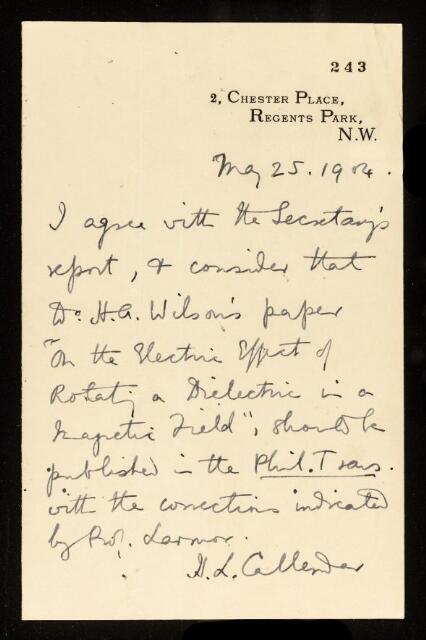 243
2, Chester Place,
Regents Park,
N.W.
May 25. 1904.
I agree with the Secretary's
report, & consider that
Dr. H.A. Wilson's paper
"On the Electric Effect of
Rotating a Dielectric in a
Magnetic Field", should be
published in the Phil. Trans.
with the corrections indicated
by Prof. Larmor.
H. L. Callendar